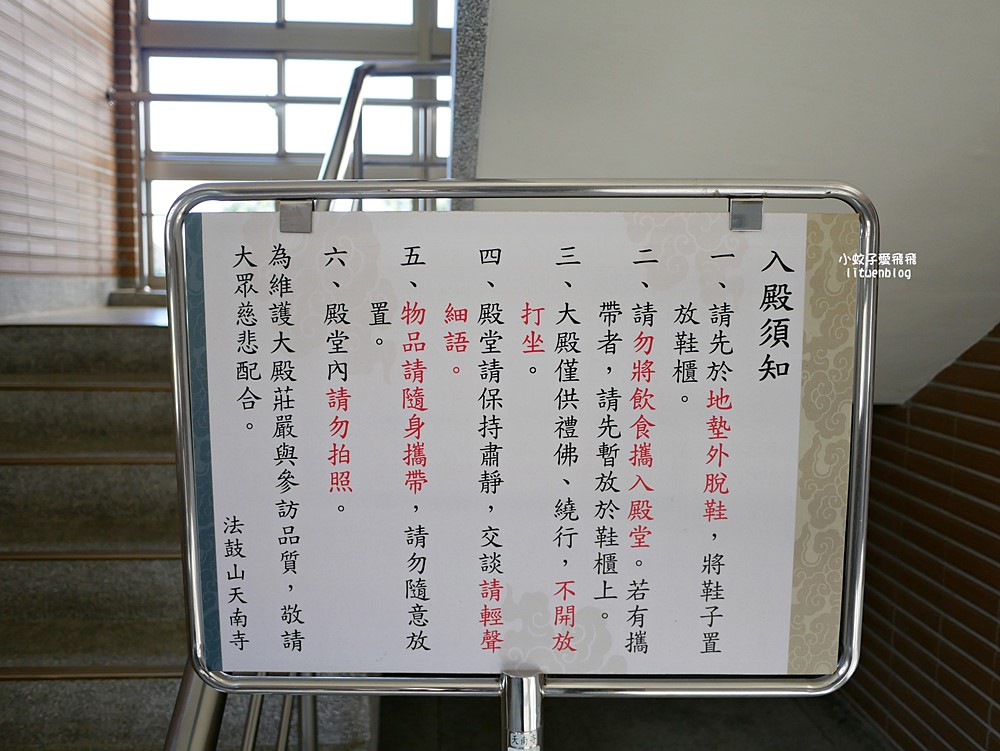 入殿須知
一、請先於地墊外脫鞋，將鞋子置
放鞋櫃。
二、請勿將飲食攜入殿堂。若有攜
帶者，請先暫放於鞋櫃上。
三、大殿僅供禮佛、繞行，不開放
打坐。
四、殿堂請保持肅靜，交談請輕聲
細語。
五、物品請隨身攜帶，請勿隨意放
置。
六、殿堂內請勿拍照。
為維護大殿莊嚴與參訪品質，敬請
大眾慈悲配合。
法鼓山天南寺
小蚊子愛飛飛
lituenblog
天南寺